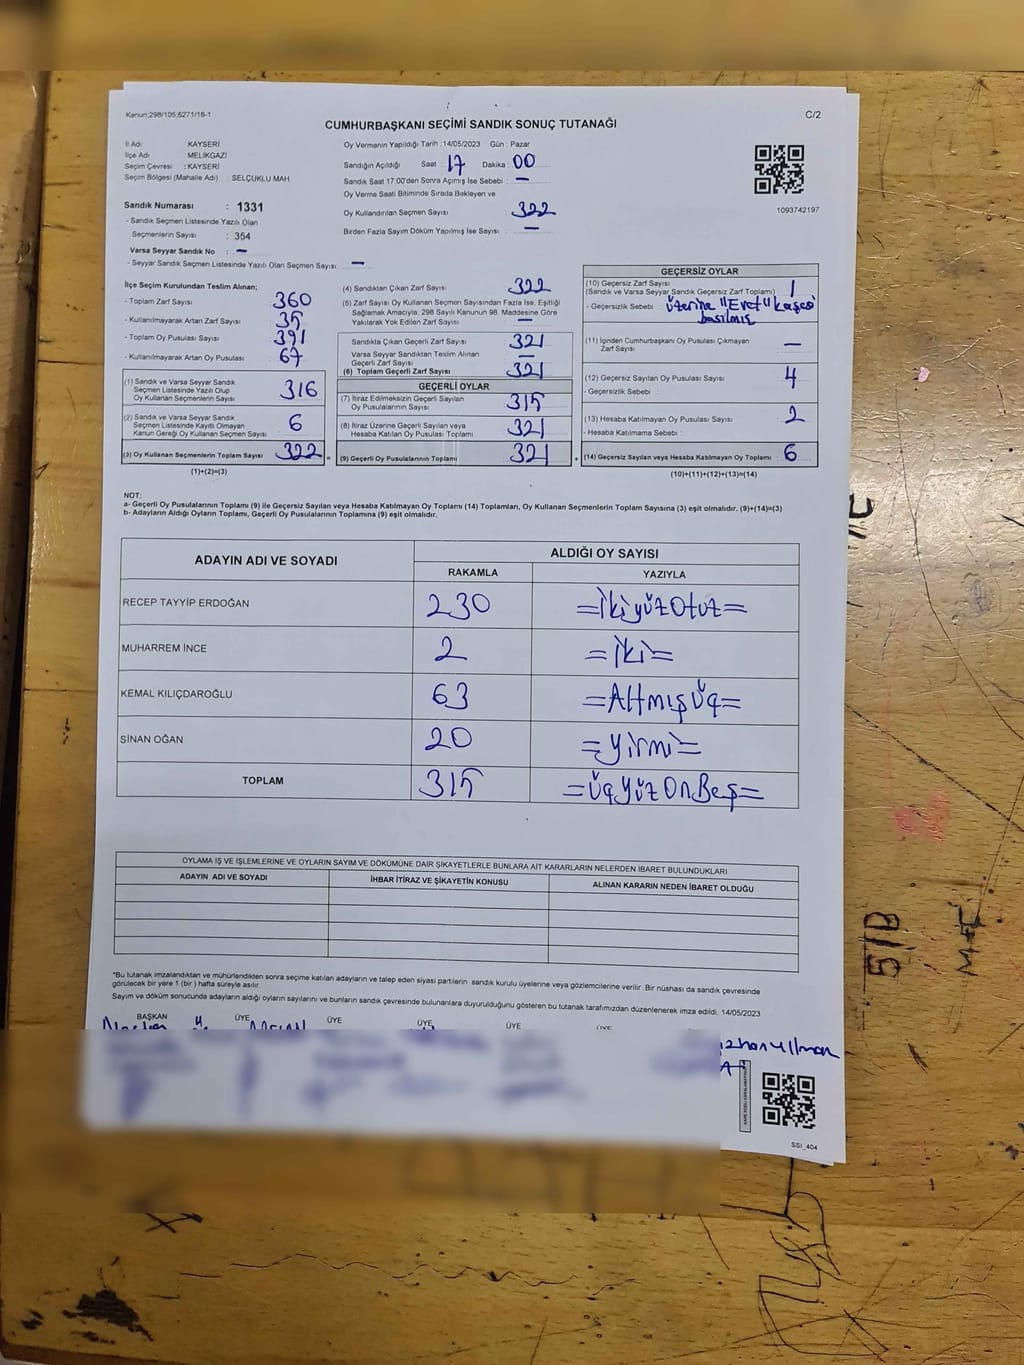 Kanun:298/105;6271/18-1
C/2
CUMHURBAŞKANI SEÇİMİ SANDIK SONUÇ TUTANAĞI
İl Adı KAYSERİ
İlçe Adı MELİKGAZİ
Seçim Çevresi : KAYSERİ
Seçim Bölgesi (Mahalle Adı) : SELÇUKLU MAH.
Sandık Numarası : 1331
- Sandık Seçmen Listesinde Yazılı Olan
Seçmenlerin Sayısı : 354
Varsa Seyyar Sandık No : -
- Seyyar Sandık Seçmen Listesinde Yazılı Olan Seçmen Sayısı: -
Oy Vermenin Yapıldığı Tarih : 14/05/2023 Gün : Pazar
Sandığın Açıldığı Saat : 17 Dakika : 00
Sandık Saat 17:00'den Sonra Açımış İse Sebebi : -
Oy Verme Saati Bitiminde Sırada Bekleyen ve
Oy Kullandırılan Seçmen Sayısı : 322
Birden Fazla Sayım Döküm Yapılmış İse Sayısı : -
1093742197
İlçe Seçim Kurulundan Teslim Alınan;
- Toplam Zarf Sayısı 360
- Kullanılmayarak Artan Zarf Sayısı 35
- Toplam Oy Pusulası Sayısı 391
- Kullanılmayarak Artan Oy Pusulası 67
(1) Sandık ve Varsa Seyyar Sandık
Seçmen Listesinde Yazılı Olup
Oy Kullanan Seçmenlerin Sayısı 316
(2) Sandık ve Varsa Seyyar Sandık
Seçmen Listesinde Kayıtlı Olmayan
Kanun Gereği Oy Kullanan Seçmen Sayısı 6
(3) Oy Kullanan Seçmenlerin Toplam Sayısı 322 =
(1)+(2)=(3)
(4) Sandıktan Çıkan Zarf Sayısı 322
(5) Zarf Sayısı Oy Kullanan Seçmen Sayısından Fazla İse, Eşitliği
Sağlamak Amacıyla; 298 Sayılı Kanunun 98. Maddesine Göre
Yakılarak Yok Edilen Zarf Sayısı -
Sandıkta Çıkan Geçerli Zarf Sayısı 321
Varsa Seyyar Sandıktan Teslim Alınan
Geçerli Zarf Sayısı -
(6) Toplam Geçerli Zarf Sayısı 321
GEÇERLİ OYLAR
(7) İtiraz Edilmeksizin Geçerli Sayılan
Oy Pusulalarının Sayısı 315
(8) İtiraz Üzerine Geçerli Sayılan veya
Hesaba Katılan Oy Pusulası Toplamı 321
(9) Geçerli Oy Pusulalarının Toplamı 321 +
GEÇERSİZ OYLAR
(10) Geçersiz Zarf Sayısı
(Sandık ve Varsa Seyyar Sandık Geçersiz Zarf Toplamı) 1
- Geçersizlik Sebebi : üzerine "Evet" kaşesi
basılmış
(11) İçinden Cumhurbaşkanı Oy Pusulası Çıkmayan
Zarf Sayısı -
(12) Geçersiz Sayılan Oy Pusulası Sayısı 4
- Geçersizlik Sebebi :
(13) Hesaba Katılmayan Oy Pusulası Sayısı 2
- Hesaba Katılmama Sebebi :
(14) Geçersiz Sayılan veya Hesaba Katılmayan Oy Toplamı 6
(10)+(11)+(12)+(13)=(14)
NOT:
a- Geçerli Oy Pusulalarının Toplamı (9) ile Geçersiz Sayılan veya Hesaba Katılmayan Oy Toplamı (14) Toplamları, Oy Kullanan Seçmenlerin Toplam Sayısına (3) eşit olmalıdır. (9)+(14)=(3)
b- Adayların Aldığı Oyların Toplamı, Geçerli Oy Pusulalarının Toplamına (9) eşit olmalıdır.
ADAYIN ADI VE SOYADI ALDIĞI OY SAYISI
RAKAMLA YAZIYLA
RECEP TAYYİP ERDOĞAN 230 =İkiyüzOtuz=
MUHARREM İNCE 2 =İki=
KEMAL KILIÇDAROĞLU 63 =AltmışÜç=
SİNAN OĞAN 20 =Yirmi=
TOPLAM 315 =ÜçYüzOnBeş=
OYLAMA İŞ VE İŞLEMLERİNE VE OYLARIN SAYIM VE DÖKÜMÜNE DAİR ŞİKAYETLERLE BUNLARA AİT KARARLARIN NELERDEN İBARET BULUNDUKLARI
ADAYIN ADI VE SOYADI İHBAR İTİRAZ VE ŞİKAYETİN KONUSU ALINAN KARARIN NEDEN İBARET OLDUĞU
*Bu tutanak imzalandıktan ve mühürlendikten sonra seçime katılan adayların ve talep eden siyasi partilerin sandık kurulu üyelerine veya gözlemcilerine verilir. Bir nüshası da sandık çevresinde
görülecek bir yere 1 (bir) hafta süreyle asılır.
Sayım ve döküm sonucunda adayların aldığı oyların sayılarını ve bunların sandık çevresinde bulunanlara duyurulduğunu gösteren bu tutanak tarafımızdan düzenlenerek imza edildi. 14/05/2023
BAŞKAN ÜYE ÜYE ÜYE ÜYE ÜYE
SSI_404
51B